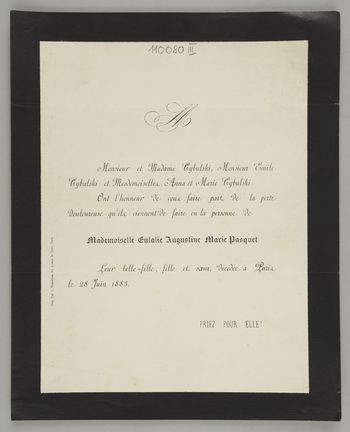 110080 III
M
Monsieur et Madame Cybulski, Monsieur Emile
Cybulski et Mesdemoiselles Anna et Marie Cybulski
Ont l'honneur de vous faire part de la perte
douloureuse qu'ils viennent de faire en la personne de
Mademoiselle Eulalie Augustine Marie Pasquet
Leur belle-fille, fille et sœur, décédée à Paris
le 28 Juin 1883.
PRIEZ POUR ELLE!